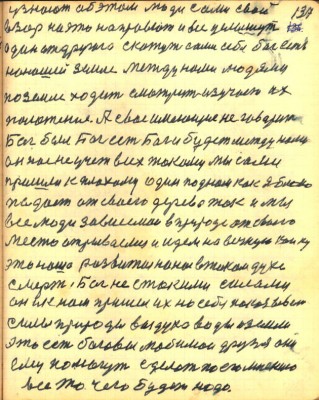 узнают об этом люди сами свой 137
взор на это направют и все узнают
один от другого скажут сами себе Бог есть
на нашей земле между нами людями
по земле ходит смотрит изучает их
положение А свое имающие не говорит
Бог был Бог есть Бог и будет между нами
он нас не учет всех такому мы сами
пришли к плохому один по одном как яблоко
падает от своего дерево так и мы
все люди зависемая в природе от своего
место отрываемся и идем на вечную
это наше развитие на в таком духе
смерть. Бог не с такими силами
он к нам пришел их на себе показывает
силы природы воздух вода и земля
это есть боговы любимои друзя они
ему помогут сделат постепенно
все то чего будет надо.